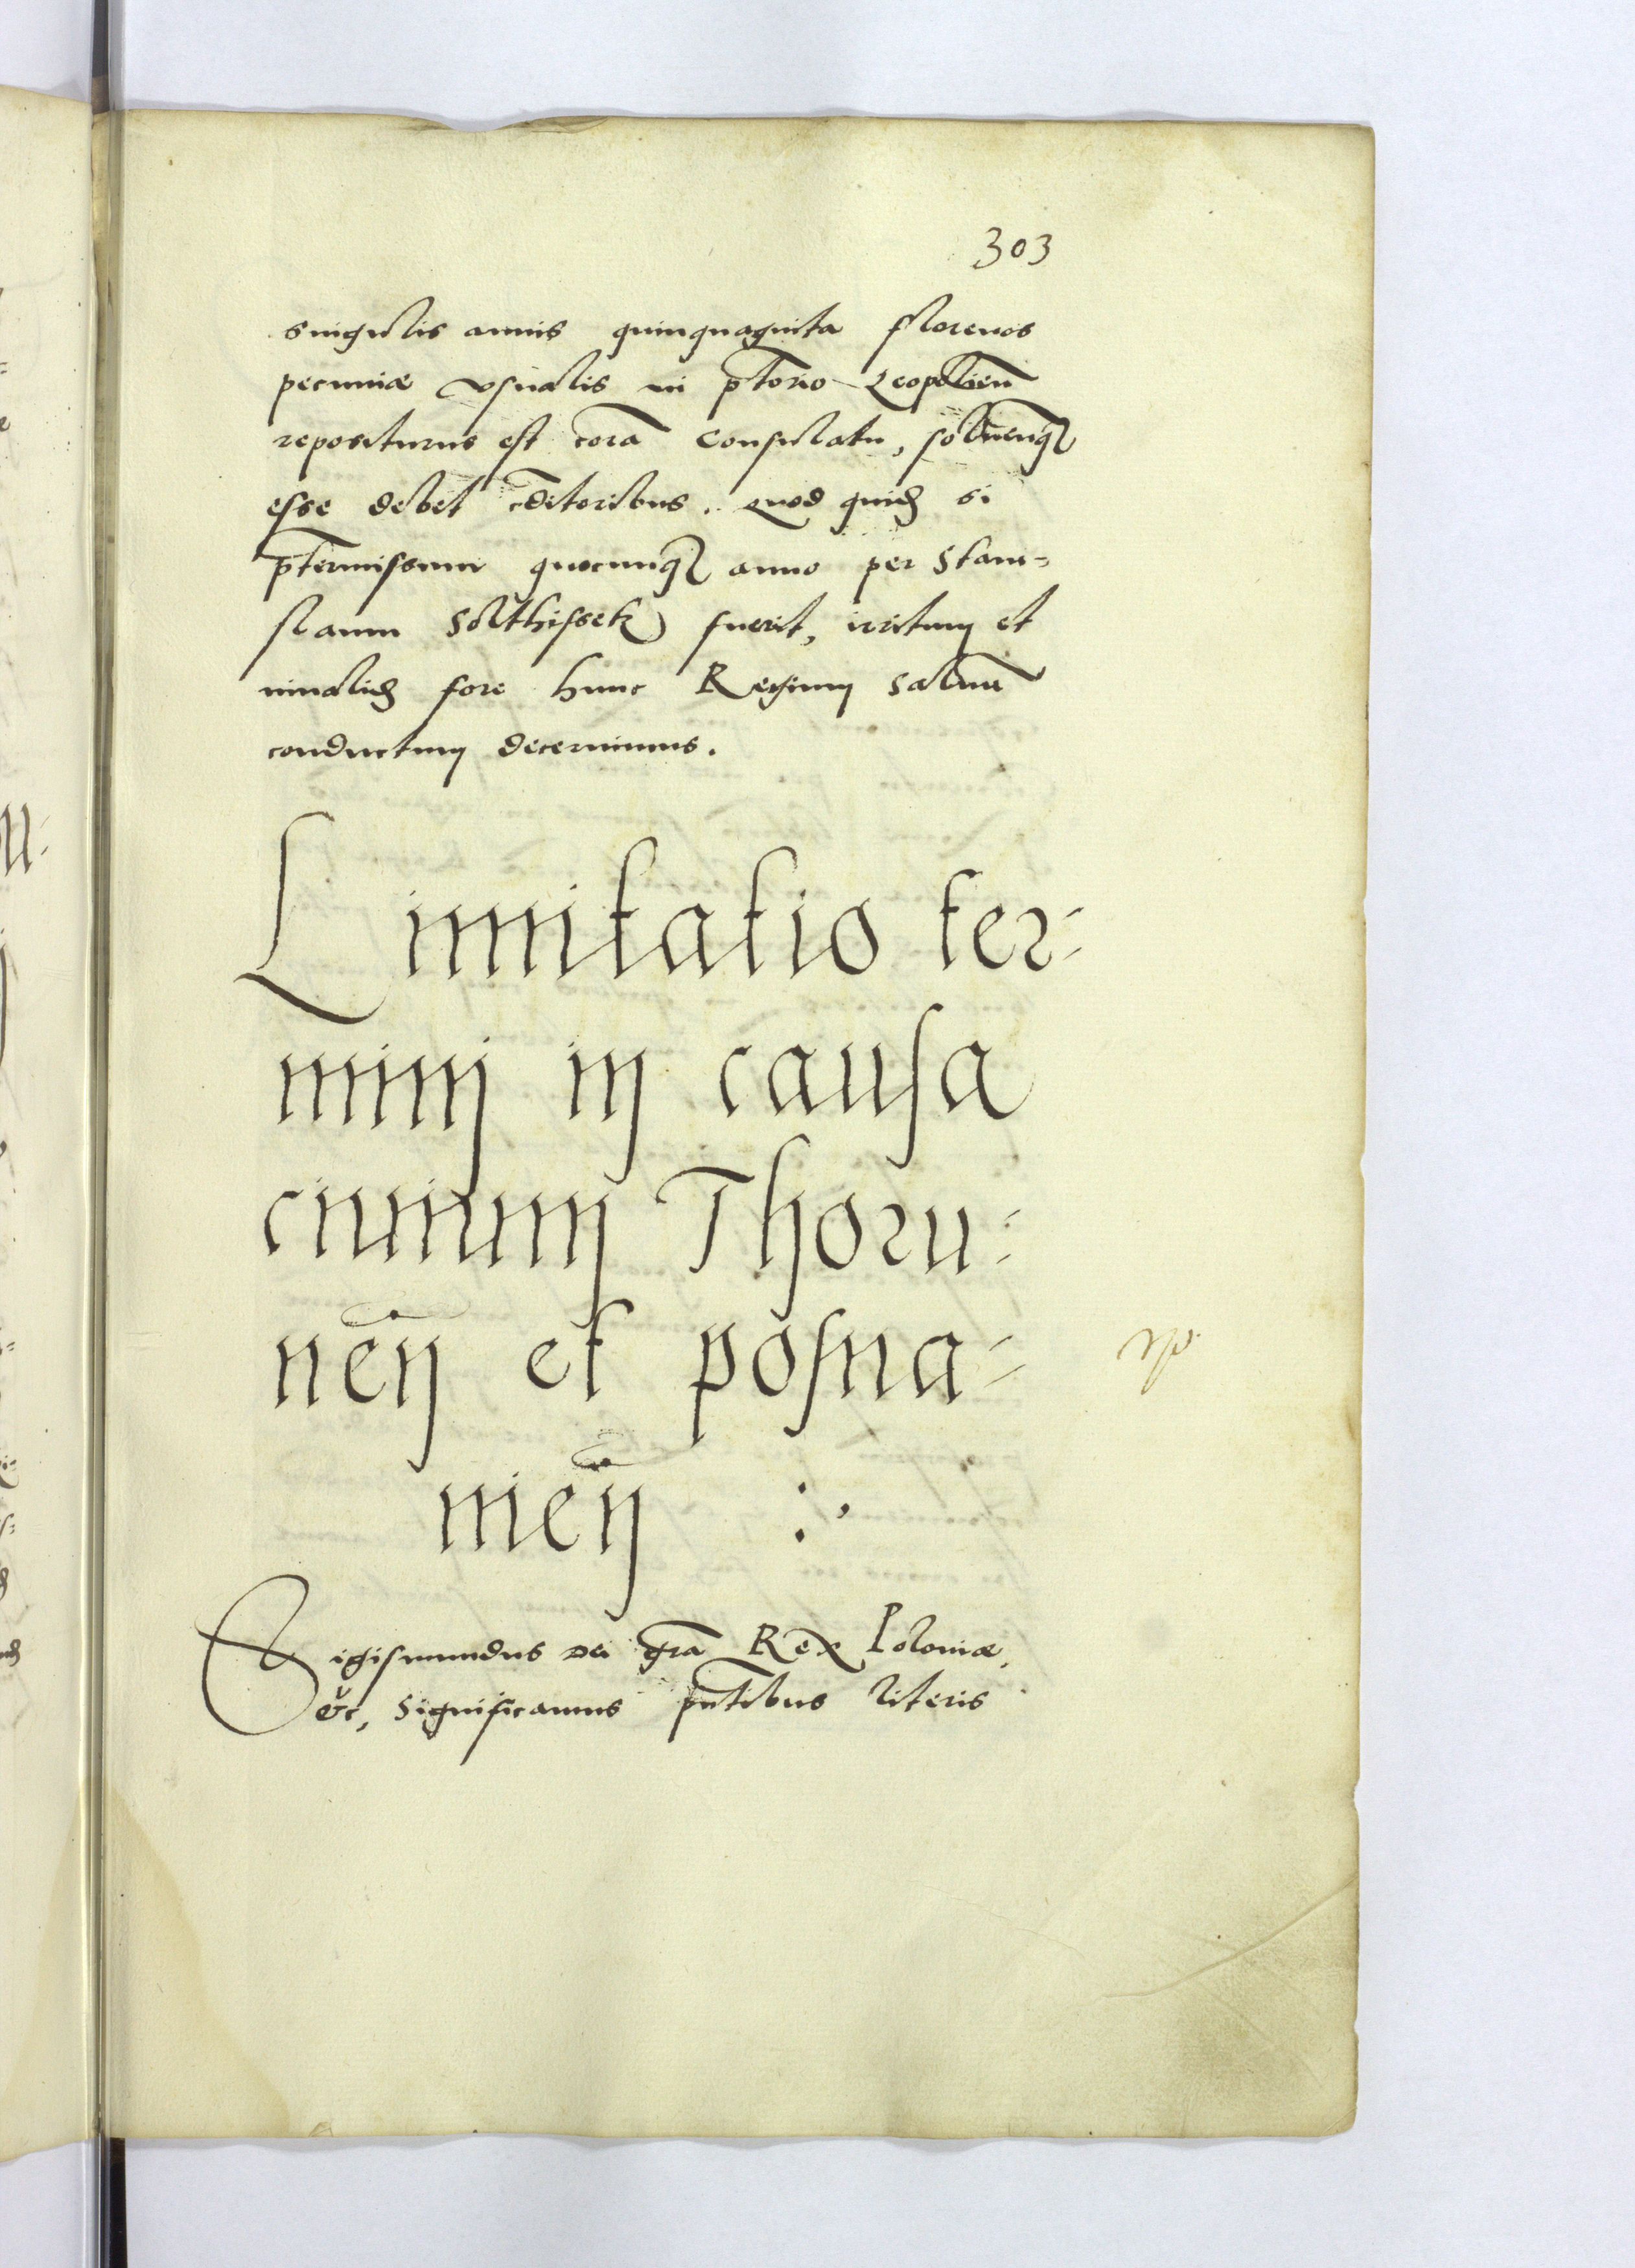 303
singulis annis quinquaginta florenos
pecuniæ vsualis in p̄torio Leopolien̄
repositurus est corā Consulatu, soluenqꝫ
esse debet cditoribus. quod quidꝫ si
p̄termissum quocunqꝫ anno per Stani=
slaum Solthissek fuerit, irritum et
inualidꝫ fore hunc Regium saluū
conductum decernimus.
Limitatio ter=
minj in causa
ciuium Thoru=
nen̄ et posna=
nien̄ :·
Sigismundus Dei gr̄a Rex Poloniæ,
&c, Significamus pn̄tibus literis